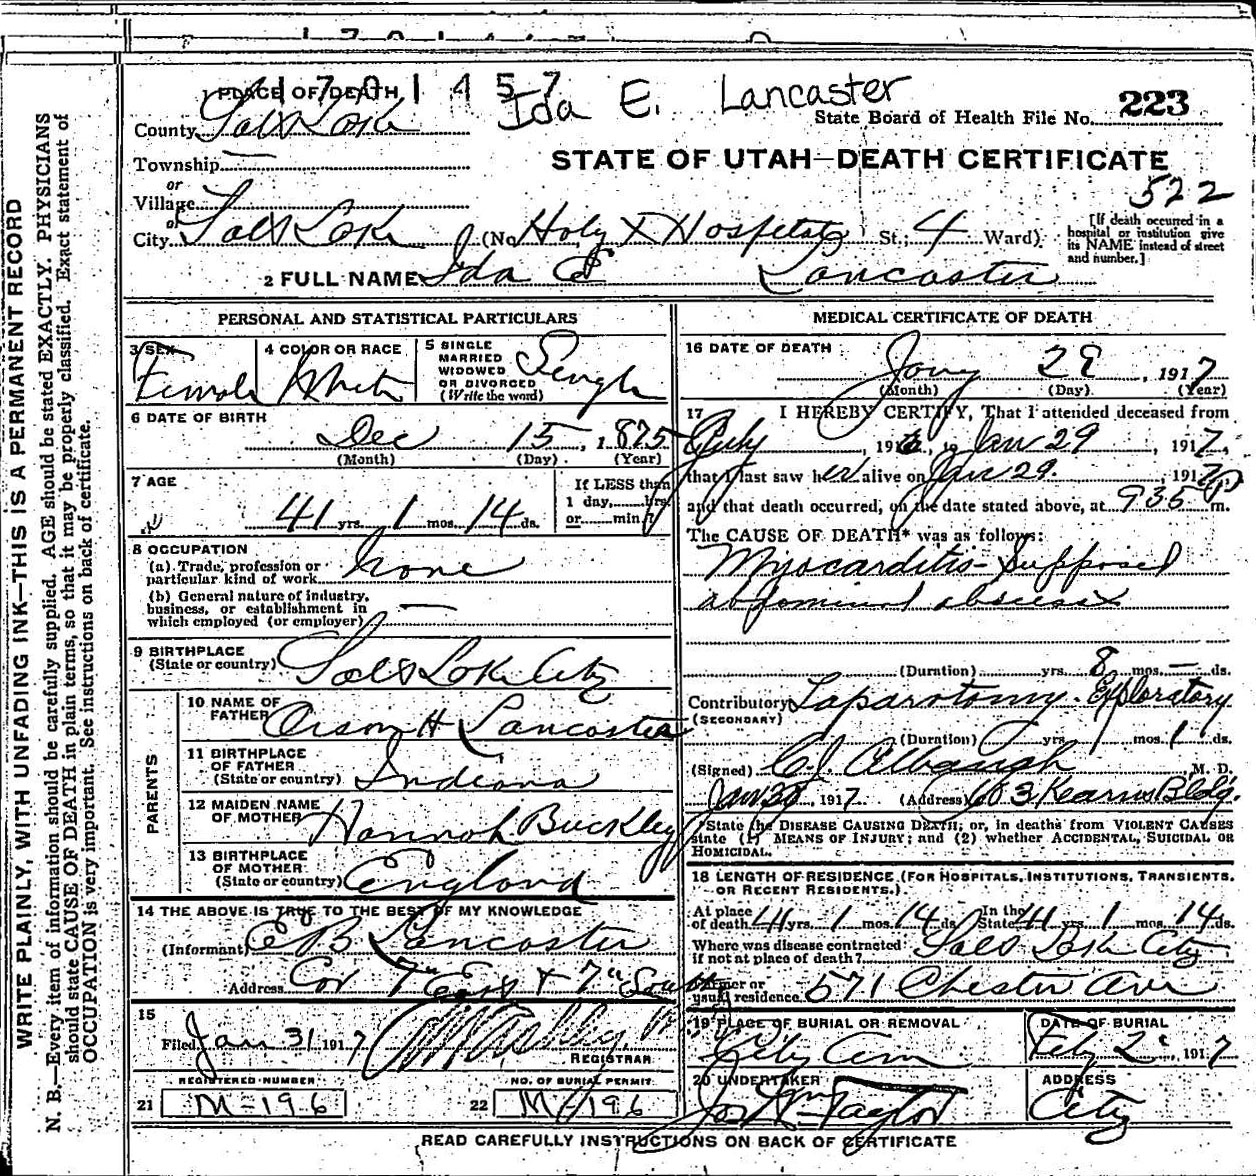 1701457
Ida E. Lancaster
1 PLACE OF DEATH
County Salt Lake
State Board of Health File No. 223
Township —
STATE OF UTAH—DEATH CERTIFICATE
or
Village
522
or
City Salt Lake (No. Holy X Hospital St.; 4 Ward)
[If death occurred in a
hospital or institution give
its NAME instead of street
and number.]
2 FULL NAME Ida E Lancaster
PERSONAL AND STATISTICAL PARTICULARS
3 SEX Female
4 COLOR OR RACE White
5 SINGLE
MARRIED
WIDOWED
OR DIVORCED
(Write the word)
Single
6 DATE OF BIRTH
Dec 15, 1875
(Month) (Day) (Year)
7 AGE
41 yrs. 1 mos. 14 ds.
If LESS than
1 day, hrs.
or min.?
8 OCCUPATION
(a) Trade, profession or
particular kind of work None
(b) General nature of industry,
business, or establishment in
which employed (or employer) —
9 BIRTHPLACE
(State or country) Salt Lake City
PARENTS
10 NAME OF
FATHER Orson H Lancaster
11 BIRTHPLACE
OF FATHER
(State or country) Indiana
12 MAIDEN NAME
OF MOTHER Hannah Buckley
13 BIRTHPLACE
OF MOTHER
(State or country) England
14 THE ABOVE IS TRUE TO THE BEST OF MY KNOWLEDGE
(Informant) E B Lancaster
Address Cor 7" East & 7" South
15
Filed Jan 31 1917
REGISTRAR
REGISTERED NUMBER
21 M-196
NO. OF BURIAL PERMIT
22 M-196
MEDICAL CERTIFICATE OF DEATH
16 DATE OF DEATH
Jany 29, 1917
(Month) (Day) (Year)
17 I HEREBY CERTIFY, That I attended deceased from
July, 1916, to Jan 29, 1917,
that I last saw her alive on Jan 29. 1917
and that death occurred, on the date stated above, at 935 P m.
The CAUSE OF DEATH* was as follows:
Myocarditis - Supposed
abdominal abscess
(Duration) yrs. 8 mos. — ds.
Contributory Laparotomy - Exploratory
(SECONDARY)
(Duration) yrs. mos. 1 ds.
(Signed) C.J. Albaugh M. D.
Jan 30, 1917 (Address) 603 Kearns Bldg.
*State the DISEASE CAUSING DEATH; or, in deaths from VIOLENT CAUSES
state (1) MEANS OF INJURY; and (2) whether ACCIDENTAL, SUICIDAL OR
HOMICIDAL.
18 LENGTH OF RESIDENCE (FOR HOSPITALS, INSTITUTIONS, TRANSIENTS,
OR RECENT RESIDENTS.)
At place
of death 41 yrs. 1 mos. 14 ds. In the
State 41 yrs. 1 mos. 14 ds.
Where was disease contracted
if not at place of death? Salt Lake City
Former or
usual residence 571 Chester Ave
19 PLACE OF BURIAL OR REMOVAL
City Cem
DATE OF BURIAL
Feby 2, 1917
20 UNDERTAKER
Jos Wm Taylor
ADDRESS
City
READ CAREFULLY INSTRUCTIONS ON BACK OF CERTIFICATE
WRITE PLAINLY, WITH UNFADING INK—THIS IS A PERMANENT RECORD
N. B.—Every item of information should be carefully supplied. AGE should be stated EXACTLY. PHYSICIANS
should state CAUSE OF DEATH in plain terms, so that it may be properly classified. Exact statement of
OCCUPATION is very important. See instructions on back of certificate.